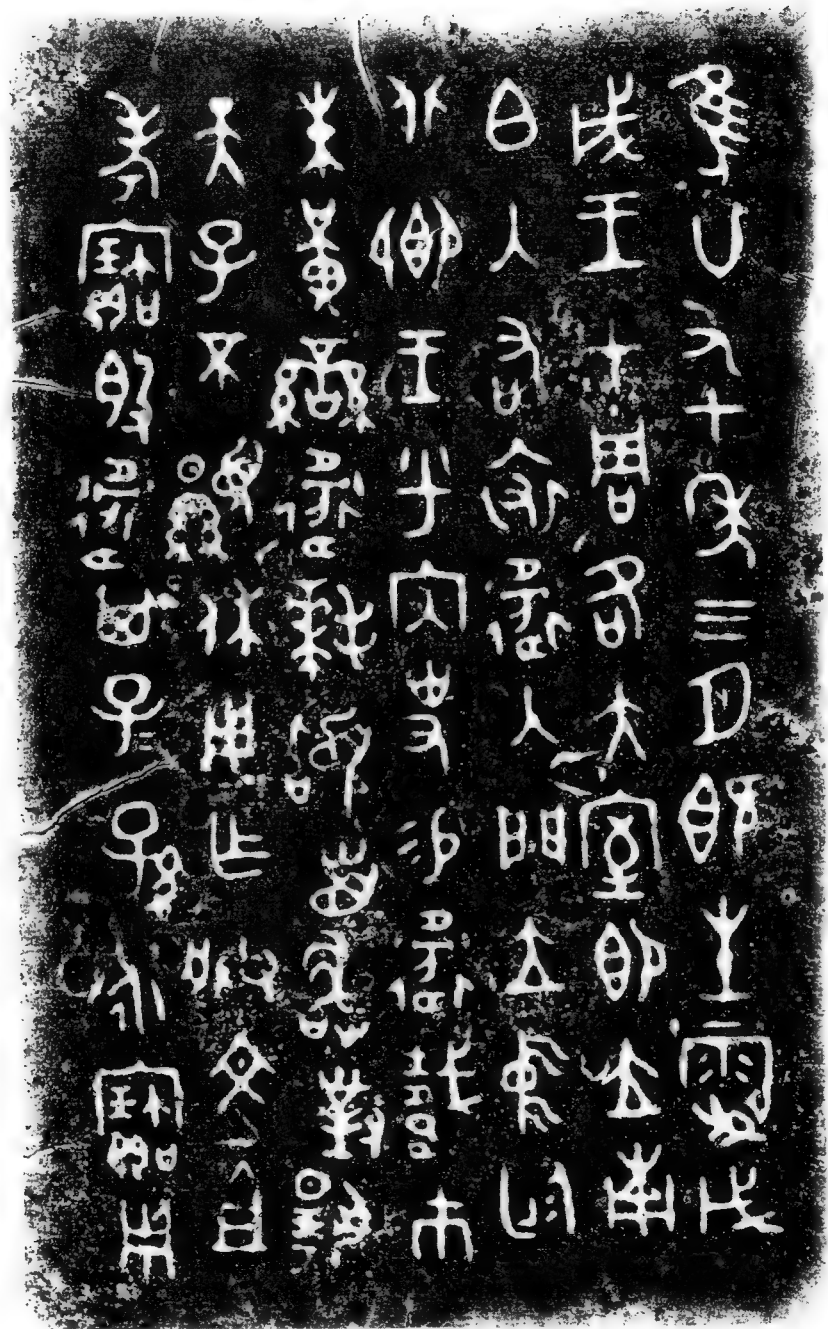 隹廿又七年三月既生霸戊
戌王才周各大室即立南
白入右裘衛入門立中廷
北鄉王乎內史易衛載巿
朱黃䜌衛拜𩒨首敢對揚
天子不顯休用乍朕文且
考寶𣪘衛其子=孫永寶用